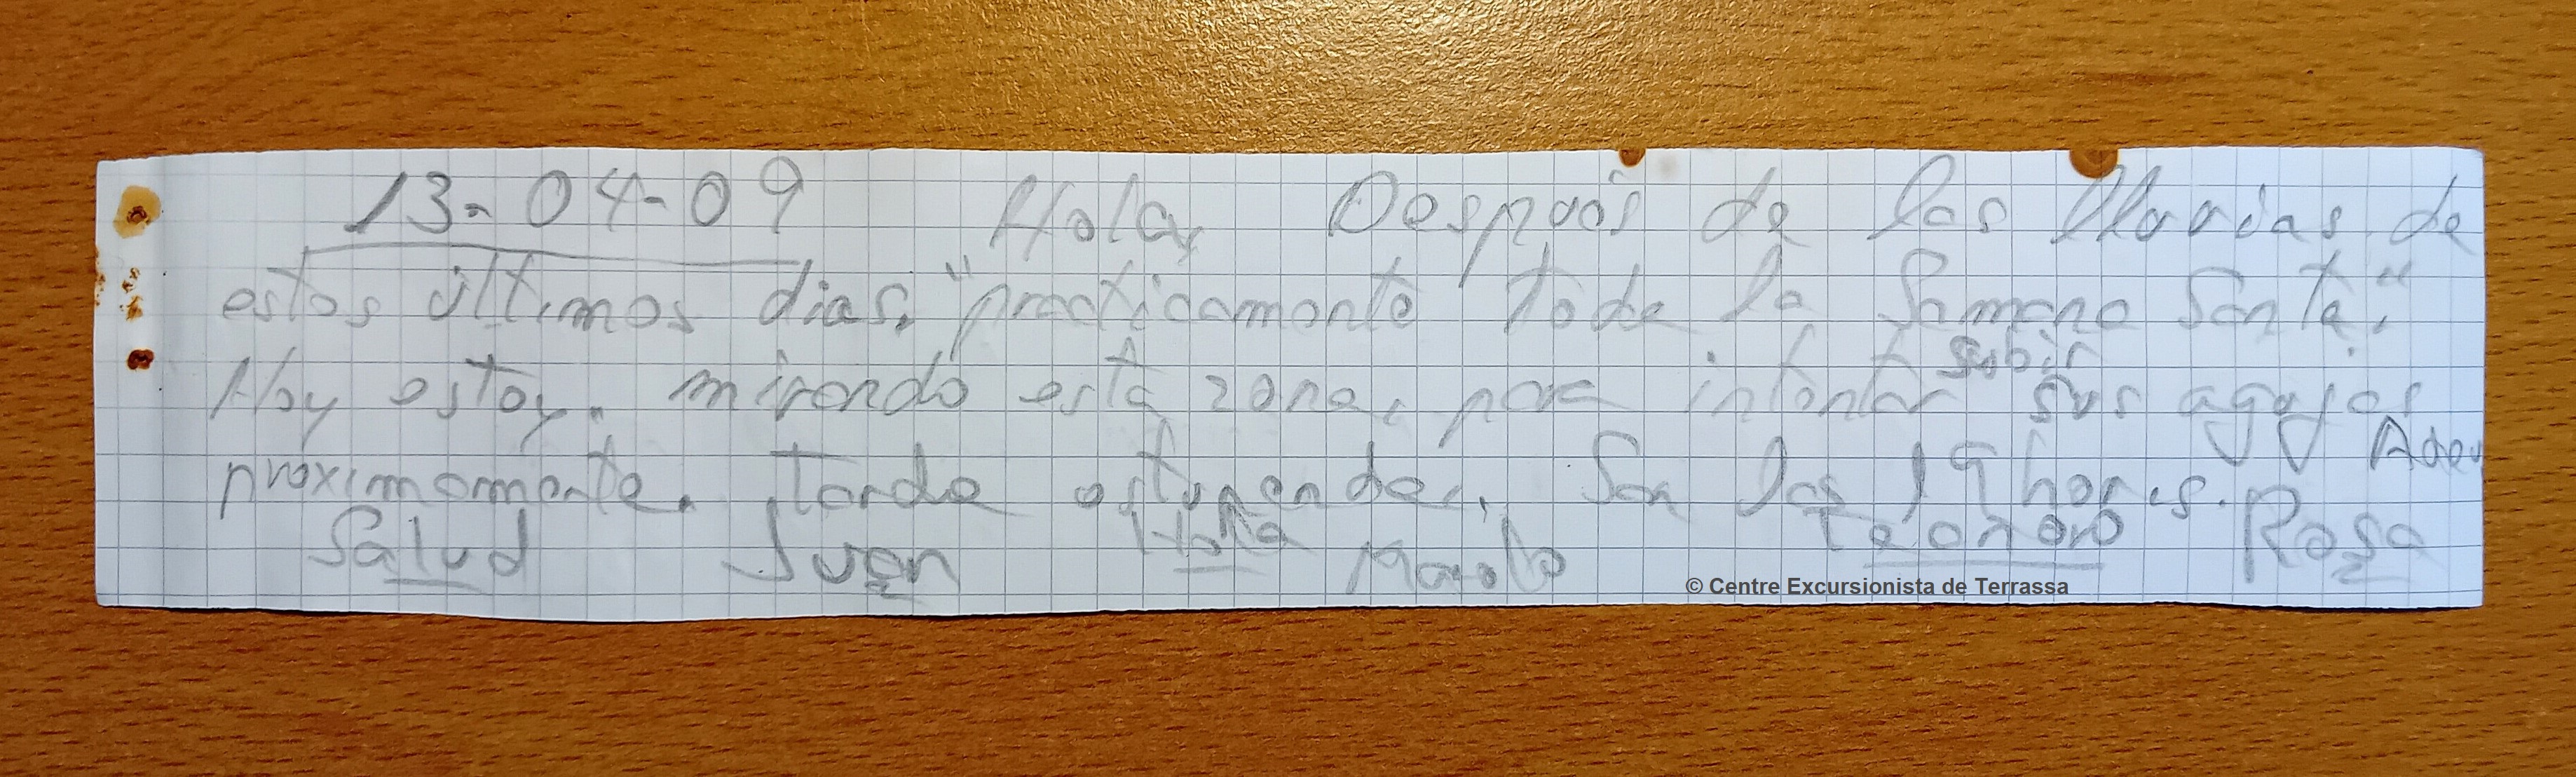 13-04-09 Hola, Después de las lluvias de
estos últimos dias, "practicamente toda la Semana Santa".
Hoy estoy mirando esta zona, para intentar subir sus agujas
proximamente. Tarde estupenda, Son las 19 horas. Adeu
Salud Juan Manolo Rosa
© Centre Excursionista de Terrassa